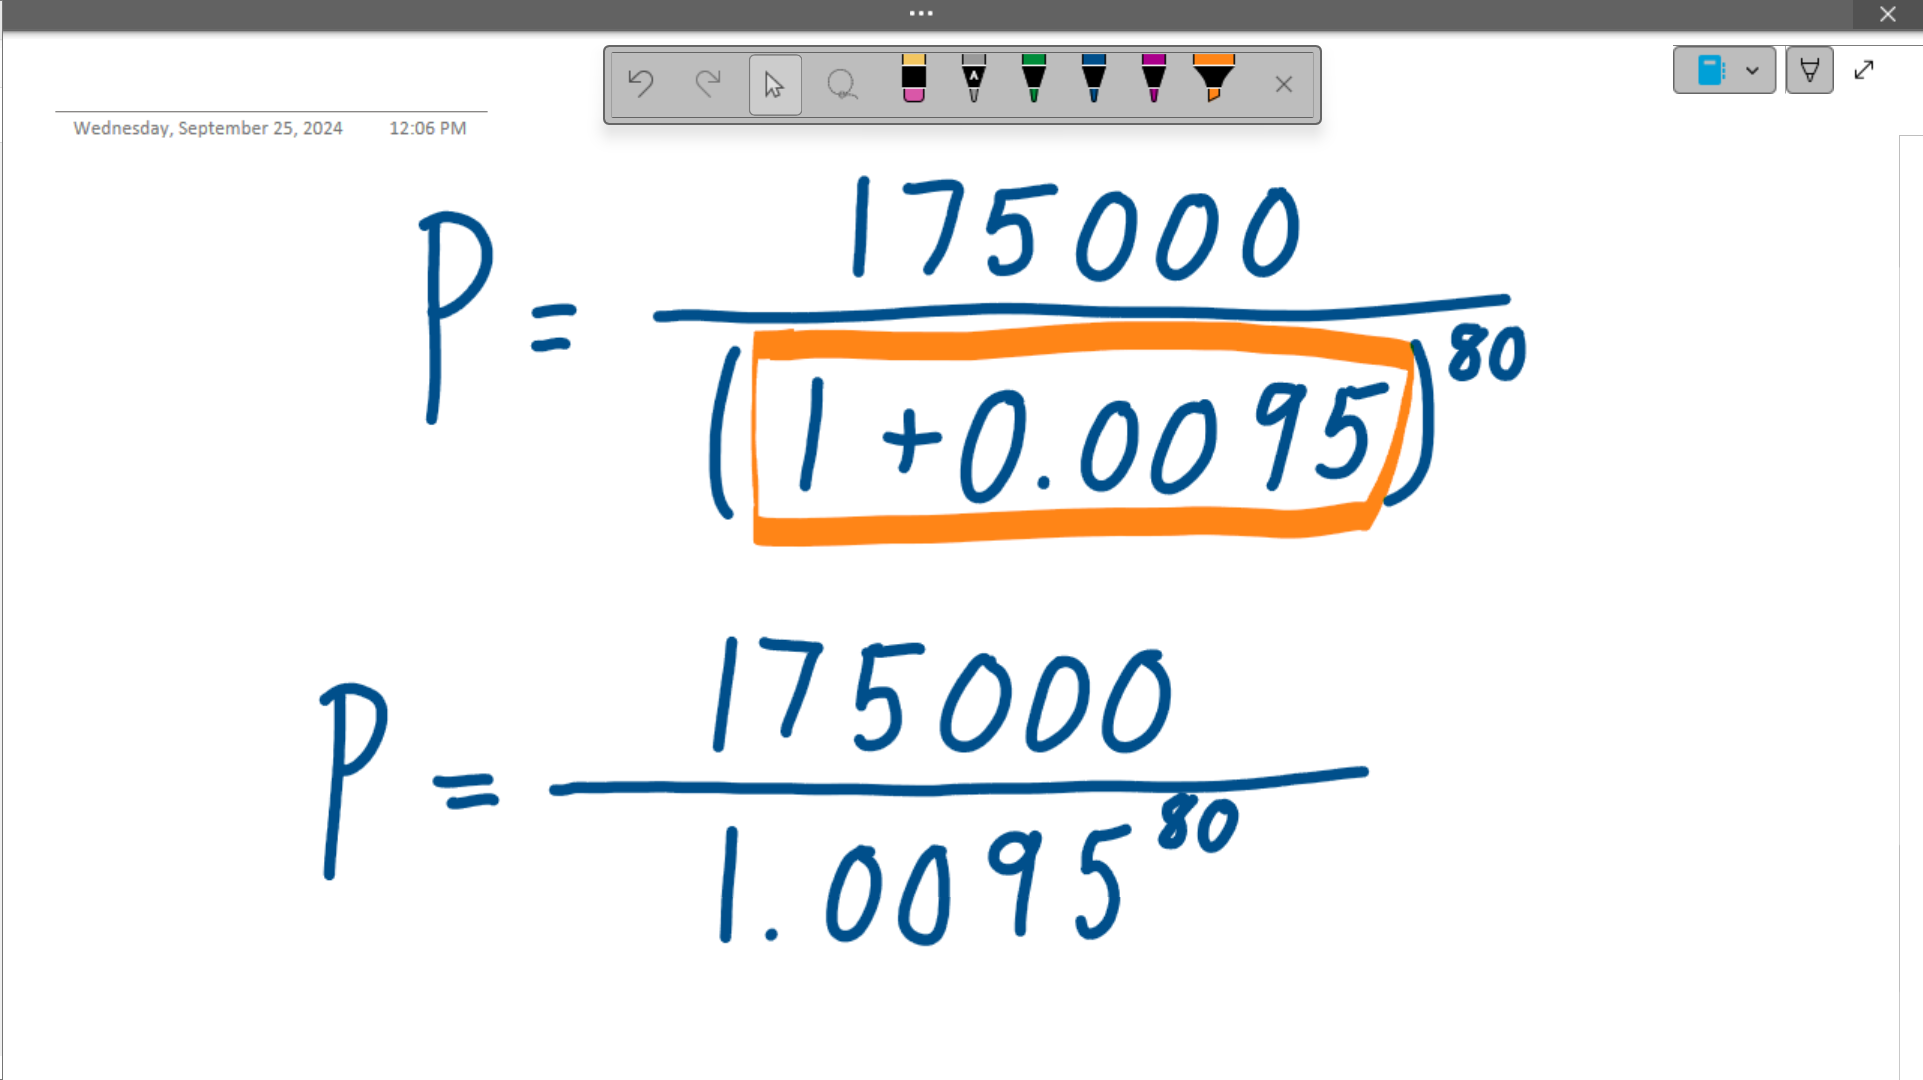 Wednesday, September 25, 2024 12:06 PM
175000
P =
(1 + 0.0095)^80
175000
P =
1.0095^80